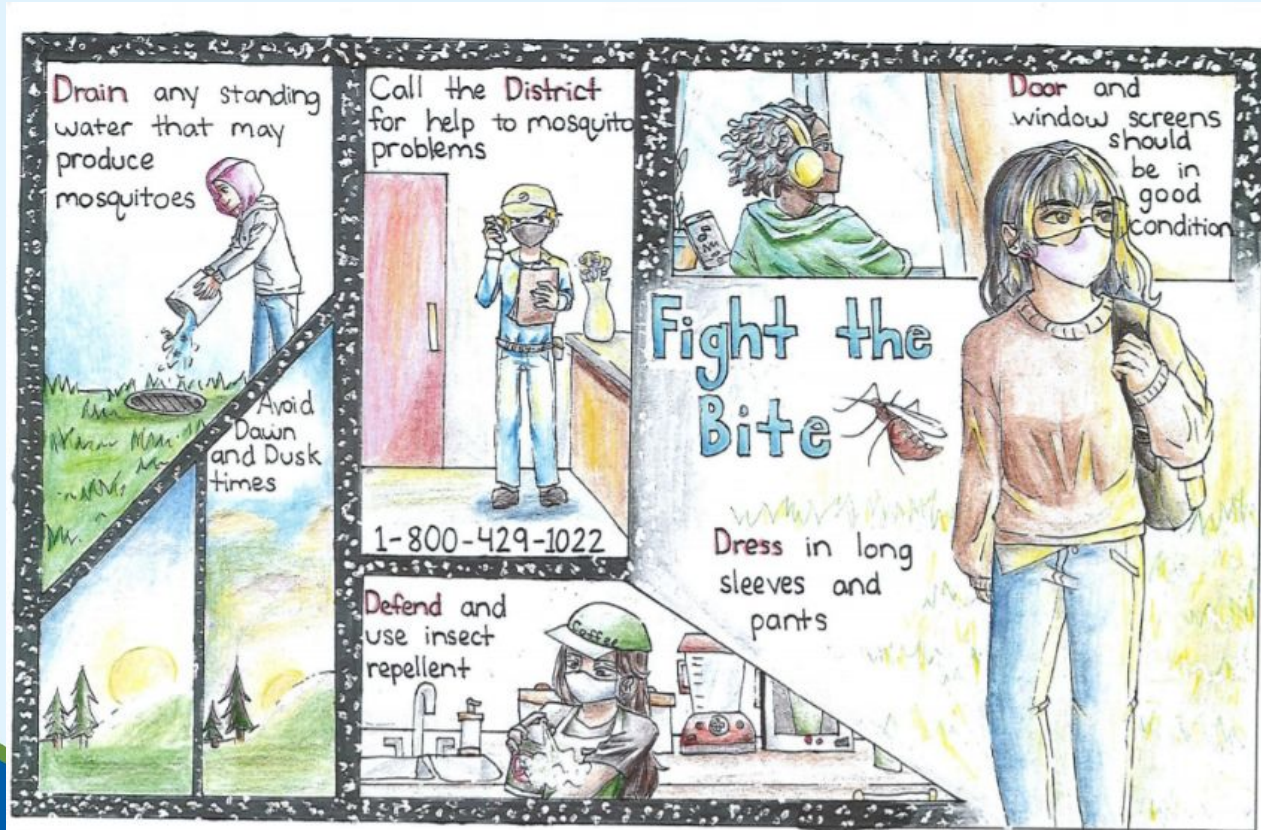 Drain any standing
water that may
produce
mosquitoes
Avoid
Dawn
and Dusk
times
Call the District
for help to mosquito
problems
1-800-429-1022
Defend and
use insect
repellent
Coffee
Door and
window screens
should
be in
good
condition
Fight the
Bite
Dress in long
sleeves and
pants